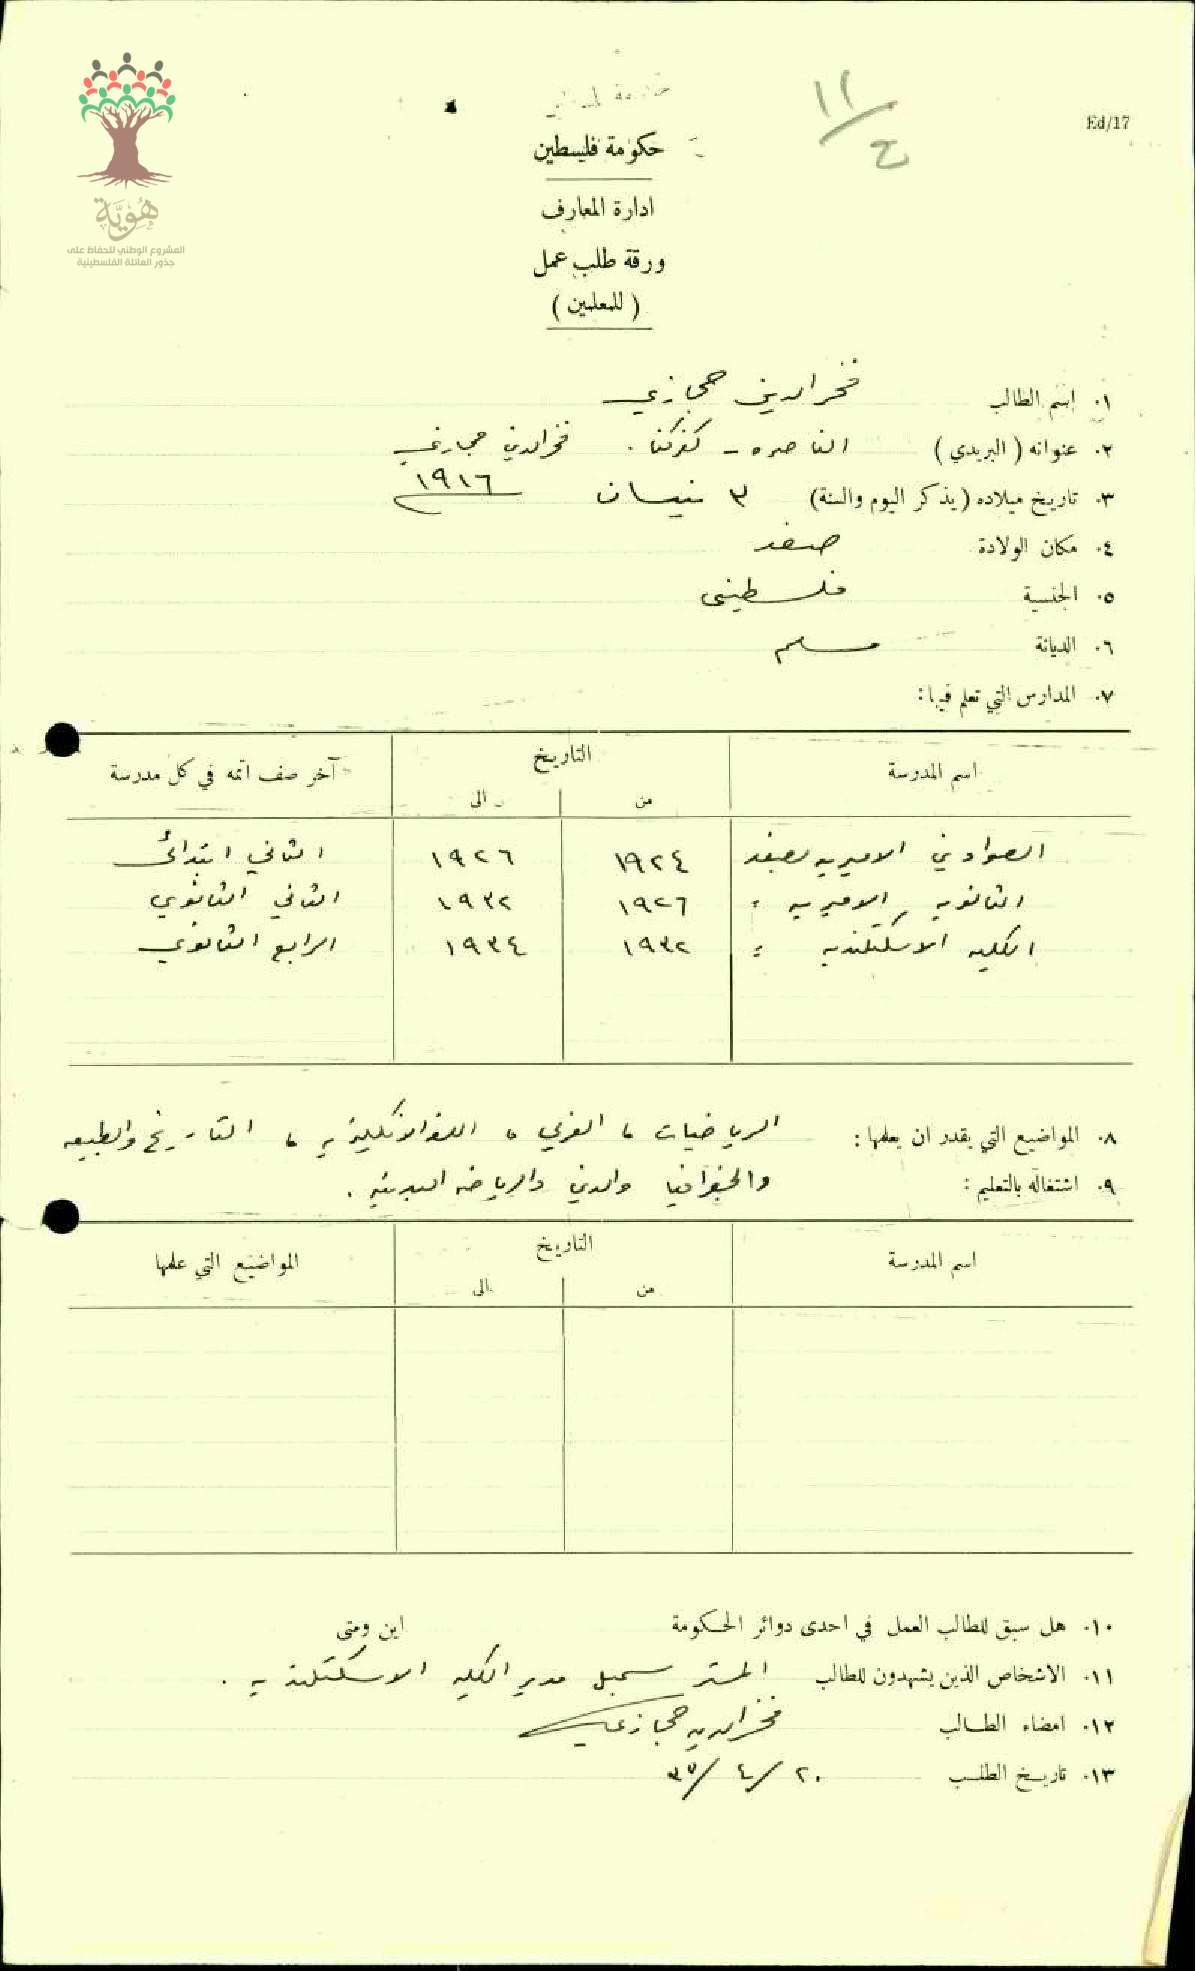 Ed/17
١١/ع
هُوِيَّة
المشروع الوطني للحفاظ على
جذور العائلة الفلسطينية
حكومة فلسطين
ادارة المعارف
ورقة طلب عمل
( للمعلمين )
١. اسم الطالب فخرالدين حجازي
٢. عنوانه ( البريدي ) الناصره - كفركنا . فخرالدين حجازي
٣. تاريخ ميلاده (يذكر اليوم والسنة) ٣ نيسان ١٩١٦
٤. مكان الولادة صفد
٥. الجنسية فلسطيني
٦. الديانة مسلم
٧. المدارس التي تعلم فيها :
اسم المدرسة التاريخ آخر صف اتمه في كل مدرسة
من الى
الصواويني الاميريه بصفد ١٩٢٤ ١٩٢٦ الثاني ابتدائي
الثانويه الاميريه : ١٩٢٦ ١٩٣٢ الثاني الثانوي
الكليه الاسكتلنديه : ١٩٣٢ ١٩٣٤ الرابع الثانوي
٨. المواضيع التي يقدر ان يعلمها : الرياضيات ، العربي ، اللغه الانكليزيه ، التاريخ والطبيعه
والجغرافيا والدين والرياضه البدنيه .
٩. اشتغاله بالتعليم :
اسم المدرسة التاريخ المواضيع التي علمها
من الى
١٠. هل سبق للطالب العمل في احدى دوائر الحكومة اين ومتى
١١. الاشخاص الذين يشهدون للطالب المستر سمبل مدير الكليه الاسكتلنديه .
١٢. امضاء الطالب فخرالدين حجازي
١٣. تاريخ الطلب ٢٠/٤/٣٥